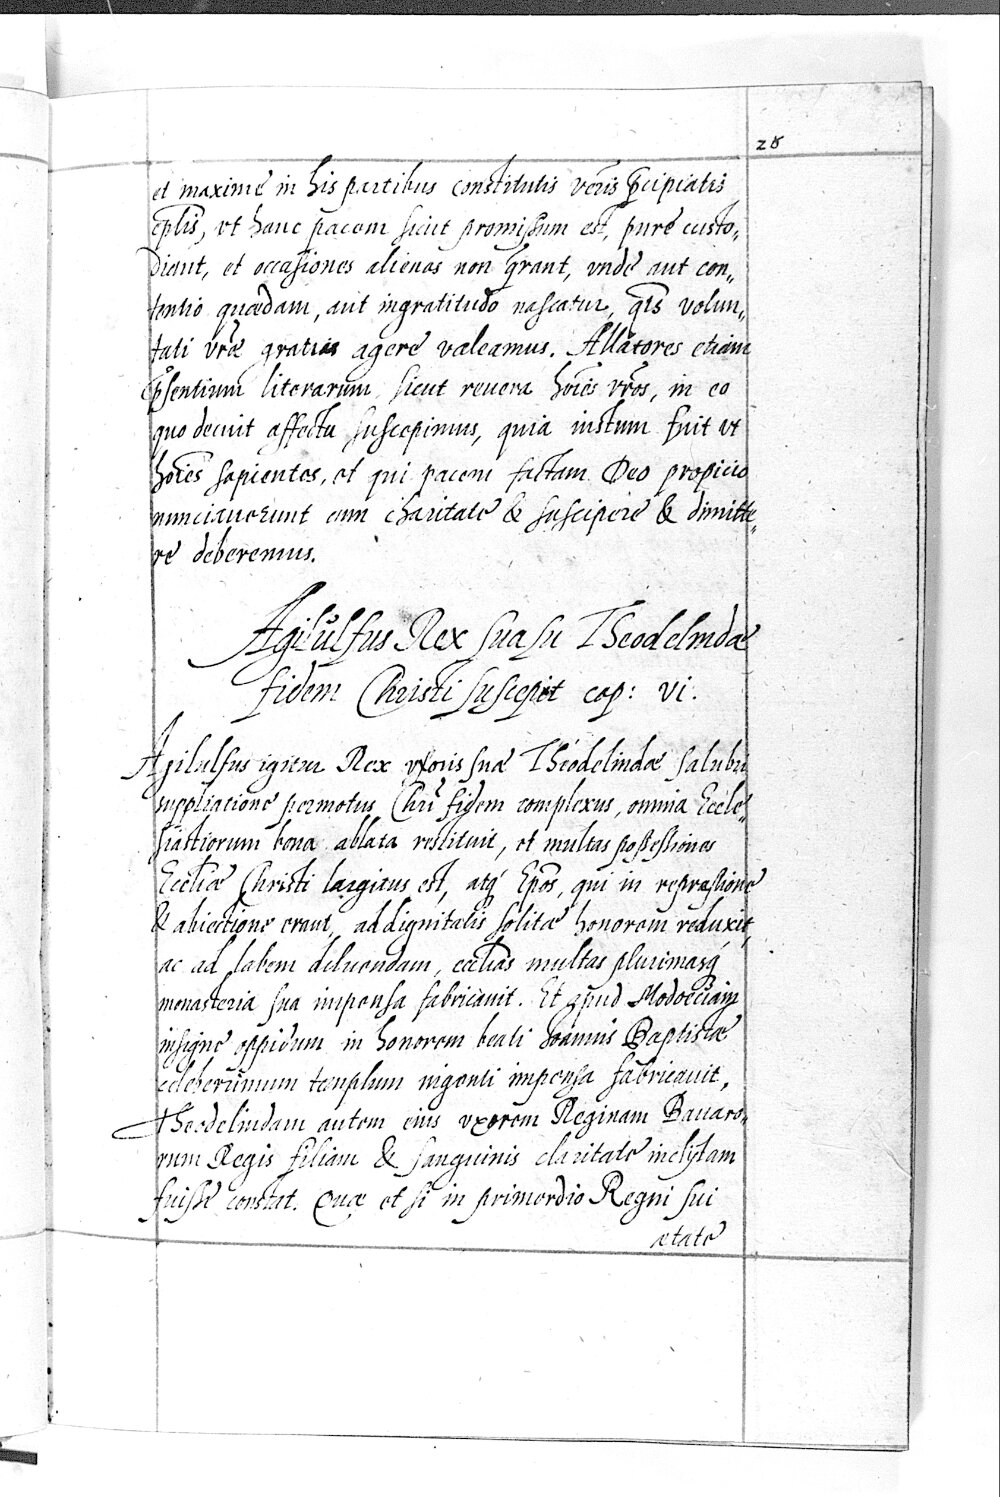 28
et maxime in his partibus constitutis vēris p̄cipiatis
eplīs, vt hanc pacem sicut promissum est, pure custo„
diant, et occasiones alienas non q̄rant, vnde aut con„
tentio quædam, aut ingratitudo nascatur, q̄ts volun„
tati vr̄æ gratias agere valeamus. Allatores etiam
p̄sentium literarum sicut reuera hoīes vr̄os, in eo
quo decuit affectu suscepimus, quia iustum fuit vt
hoīes sapientes, et qui pacem factam Deo propicio
nunciauerunt cum charitate & suscipere & dimitte„
re deberemus.
Agilulfus Rex suasu Theodelindæ
fidem Christi suscepit cap: vi.
Agilulfus igitur Rex vxoris suæ Theodelindæ salubri
suppliatione permotus Chrī fidem complexus, omnia Eccle„
siasticorum bona ablata restituit, et multas possessiones
Eccliæ Christi largitus est, atq́ Ep̄os, qui in repræssione
& abiectione erant, ad dignitatis solitæ honorem reduxit,
ac ad labem diluendam, ecclīas multas plurimasq́
monasteria sua impensa fabricauit. Et apud Modoeciam
insigne oppidum in honorem beati Ioannis Baptistæ
celeberrimum templum nigenti impensa fabricauit,
Theodelindam autem eius vxorem Reginam Bauaro„
rum Regis filiam & sanguinis claritate inclytam
fuisse constat. Quæ et si in primordio Regni sui
ætate